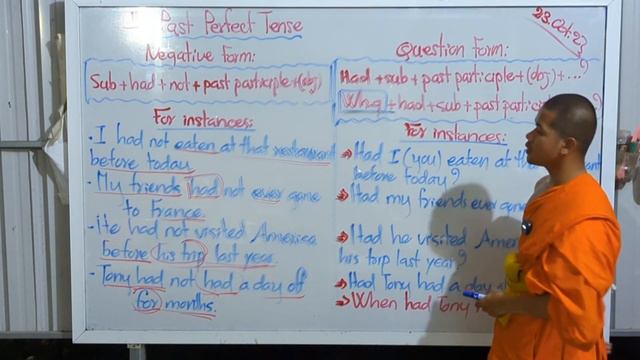 Past Perfect Tense
23.Oct.23
Negative form:
Sub+had+not+past participle+(obj)
For instances:
• I had not eaten at that restaurant
before today.
- My friends had not ever gone
to France.
- He had not visited America
before his trip last year.
- Tony had not had a day off
for months.
Question form:
Had+sub+past participle+(obj)+...?
Whq+had+sub+past
?
For instances:
Had I (you) eaten at
before today?
Had my friends ever gone
Had he visited
his trip last year?
Had Tony had a day
When had Tony